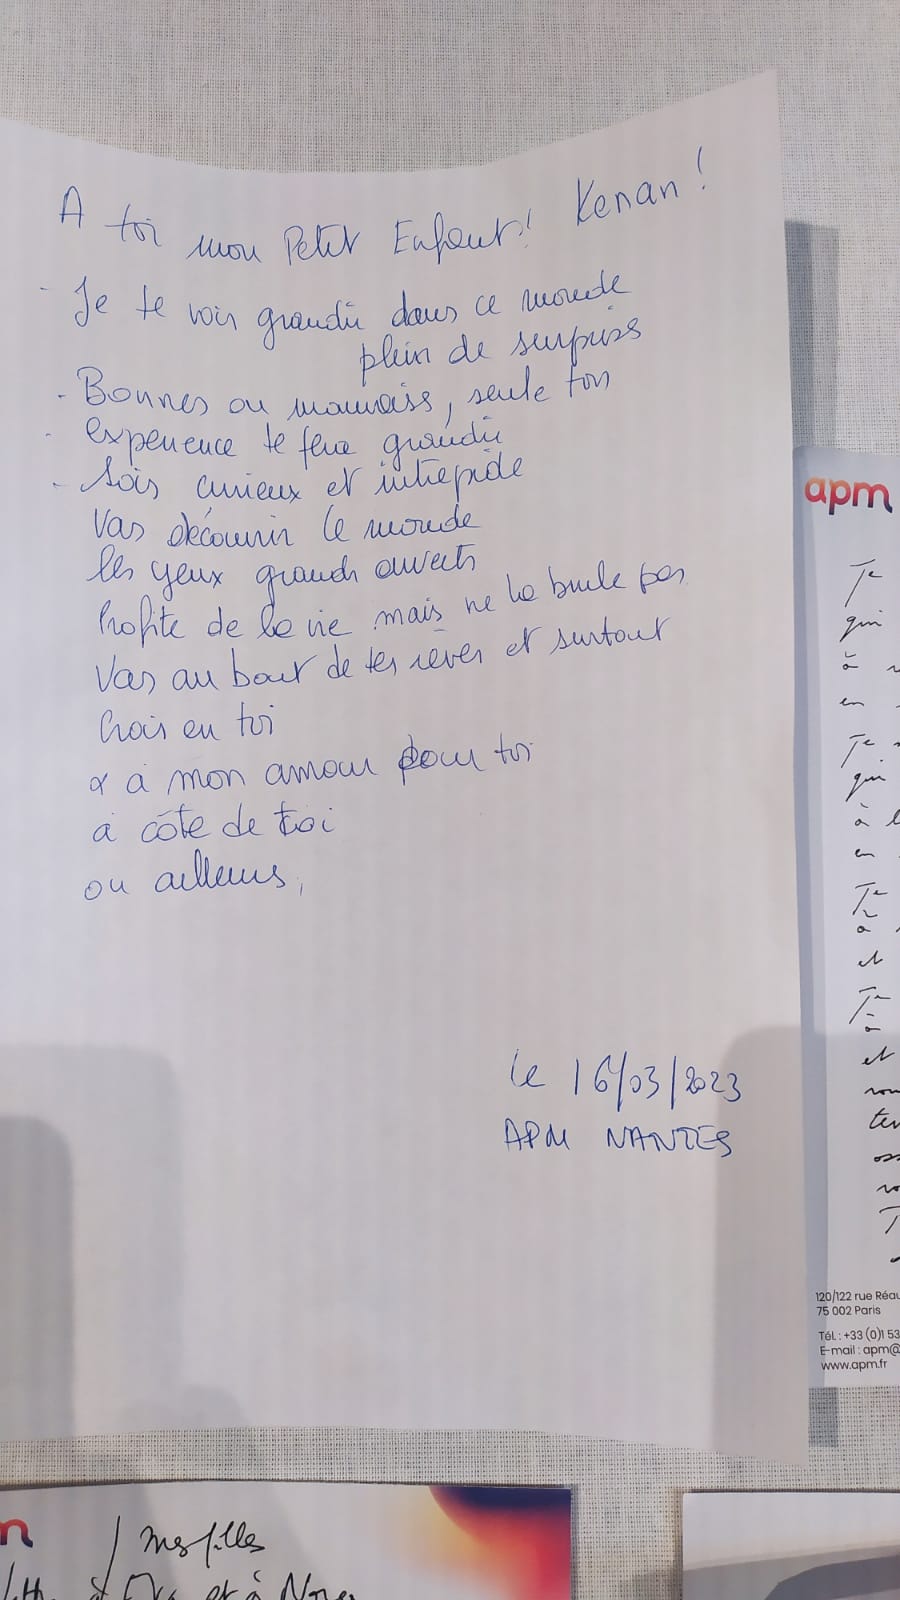 A toi mon Petit Enfant! Kenan!
- Je te vois grandir dans ce monde
plein de surprises
- Bonnes ou mauvaises, seule ton
- expérience te fera grandir
- Sois curieux et intrépide
Vas découvrir le monde
les yeux grands ouverts
Profite de la vie mais ne la brule pas
Vas au bout de tes rêves et surtout
Crois en toi
& à mon amour pour toi
à côté de toi
ou ailleurs,
le 16/03/2023
APM NANTES
apm
Te
qui
à
en
Te
qui
à
en
Te
à
et
Te
à
et
120/122 rue Réau
75 002 Paris
Tél. : +33 (0)1 53
E-mail : apm@
www.apm.fr
Mes filles
et à